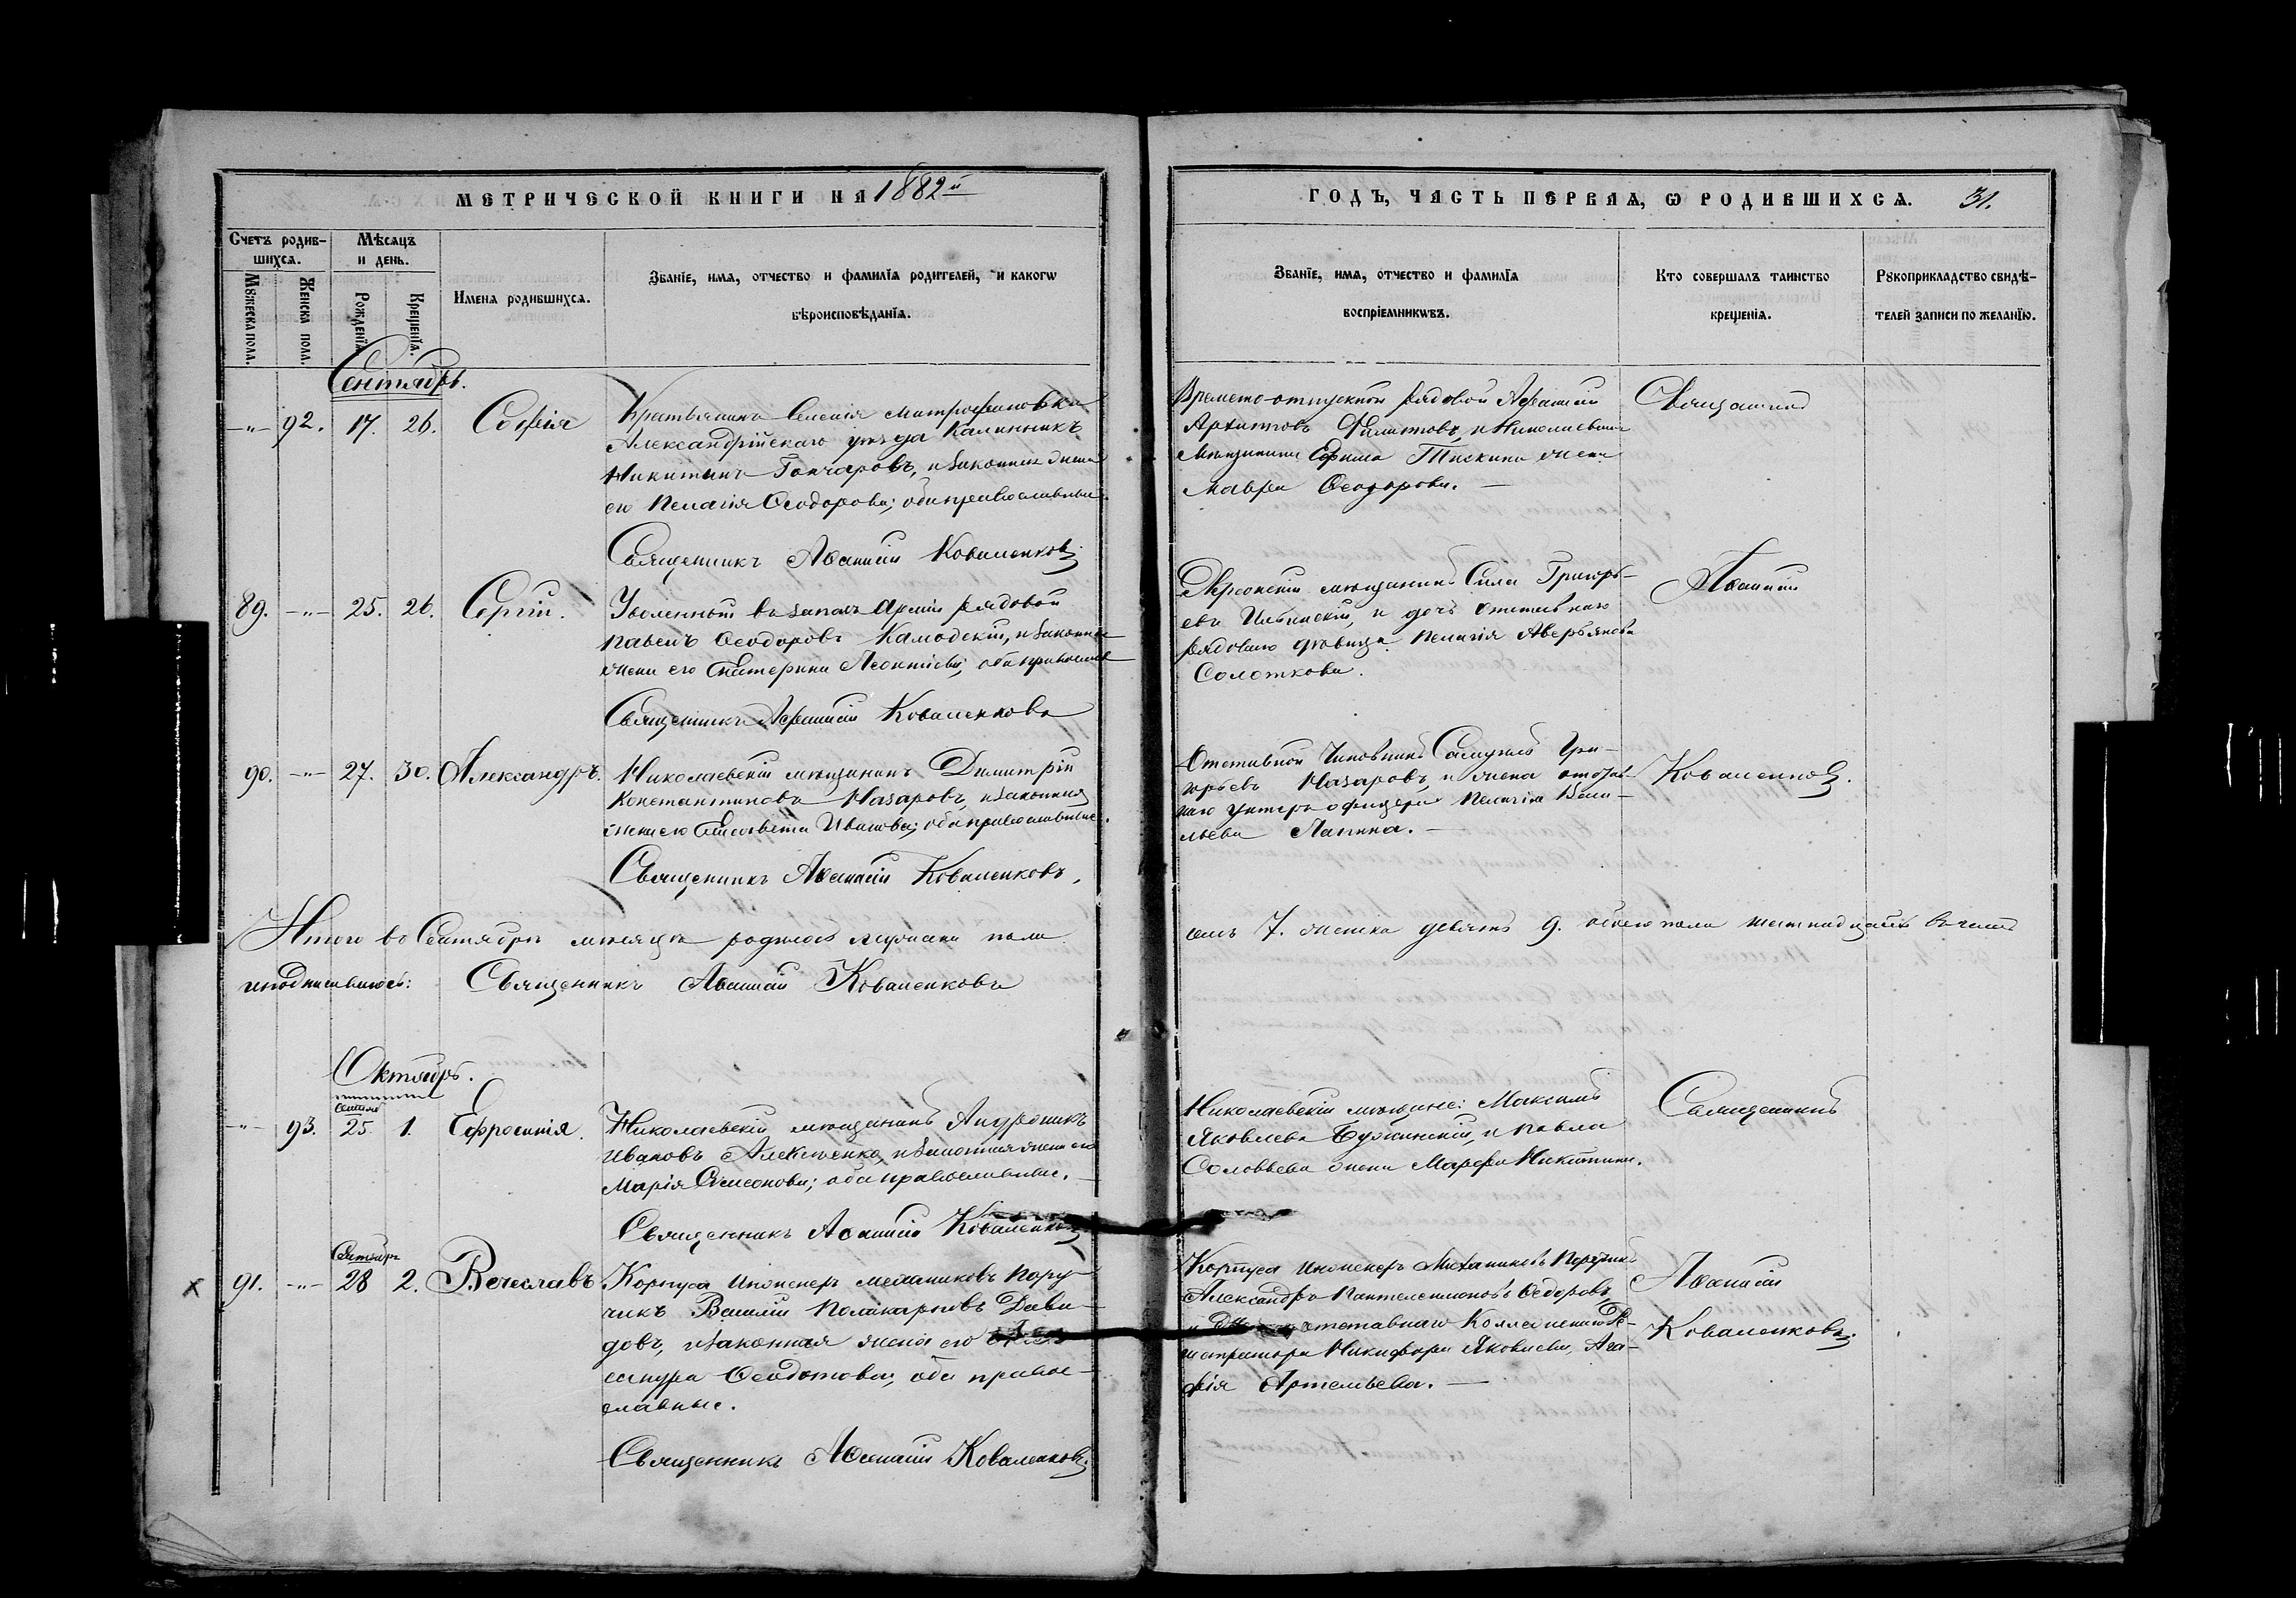 МЕТРИЧЕСКОЙ КНИГИ НА 1882й
ГОДЪ, ЧАСТЬ ПЕРВАЯ, Ѡ РОДИВШИХСЯ. 31.
Счетъ родив-
шихся.
Мѣсяцъ
и день.
Мꙋжеска пола.
Женска пола.
Рожденїя.
Крещенїя.
Имена родившихся.
Званїе, имя, отчество и фамилїя родителей, и какогѡ
вѣроисповѣданїя.
Званїе, имя, отчество и фамилїя
воспрїемникѡвъ.
Кто совершалъ таинство
крещенїя.
Рꙋкоприкладство свидѣ-
телей записи по желанїю.
Сентябрь.
-"- 92. 17. 26. Софія
Крестьянинъ Селенія Митрофановки
Александрійскаго уѣзда Калинникъ
Никитинъ Гончаровъ, и законная жена
его Пелагія Ѳеодорова; оба православные.
Священникъ Аѳанасій Коваленковъ
Времено-отпускной рядовой Афанасій
Архиповъ Филиповъ, и Николаевскаго
мѣщанина Ефима жена
Мавра Ѳеодорова. —
Священникъ
89. -"- 25. 26. Сергій.
Уволенный въ запасъ Арміи рядовой
Павелъ Ѳеодоровъ, и законная
жена его Екатерина Леонтіева; оба православные
Священникъ Афанасій Коваленковъ
Херсонскій мѣщанинъ Сила Григорь-
евъ Ильинскій, и дочь отставнаго
рядоваго дѣвица Пелагія Аверьянова
Солоткова.
Аѳанасій
90. -"- 27. 30. Александръ.
Николаевскій мѣщанинъ Димитрій
Константиновъ Назаровъ, и законная
жена его Елисавета Иванова; оба православные.
Священникъ Аѳанасій Коваленковъ.
Отставной Чиновникъ Самуилъ Гри-
горьевъ Назаровъ, и жена отстав-
наго унтеръ офицера Пелагія Васи-
льева Лапина. —
Коваленковъ.
Итого въ Сентябрѣ мѣсяцѣ родилось мужеска пола
семь 7. женска девять 9. обоего пола шестнадцать
Священникъ Аѳанасій Коваленковъ
Октябрь.
Сентяб
-"- 93. 25. 1. Ефросинія.
Николаевскій мѣщанинъ Андроникъ
Ивановъ Алексѣенко, и законная жена его
Марія Симеонова; оба православные.
Священникъ Аѳанасій Коваленковъ
Николаевскіе мѣщане: Максимъ
Яковлевъ Бужинскій, и Павла
Соловьева жена Марфа Никитина.
Священникъ
Сентябрь
х 91. -"- 28 2. Вячеславъ
Корпуса Инженеръ механиковъ Пору-
чикъ Василій Поликарповъ Дави-
довъ, и законная жена его Алек-
сандра Ѳеодотова, оба право-
славные.
Священникъ Аѳанасій Коваленковъ.
Корпуса Инженеръ Механиковъ Поручикъ
Александръ Пантелеимоновъ Ѳедоровъ,
и отставнаго Коллежскаго Ре-
гистратора Никифора Яковлева, Ага-
фія Артемьева. —
Аѳанасій
Коваленковъ.